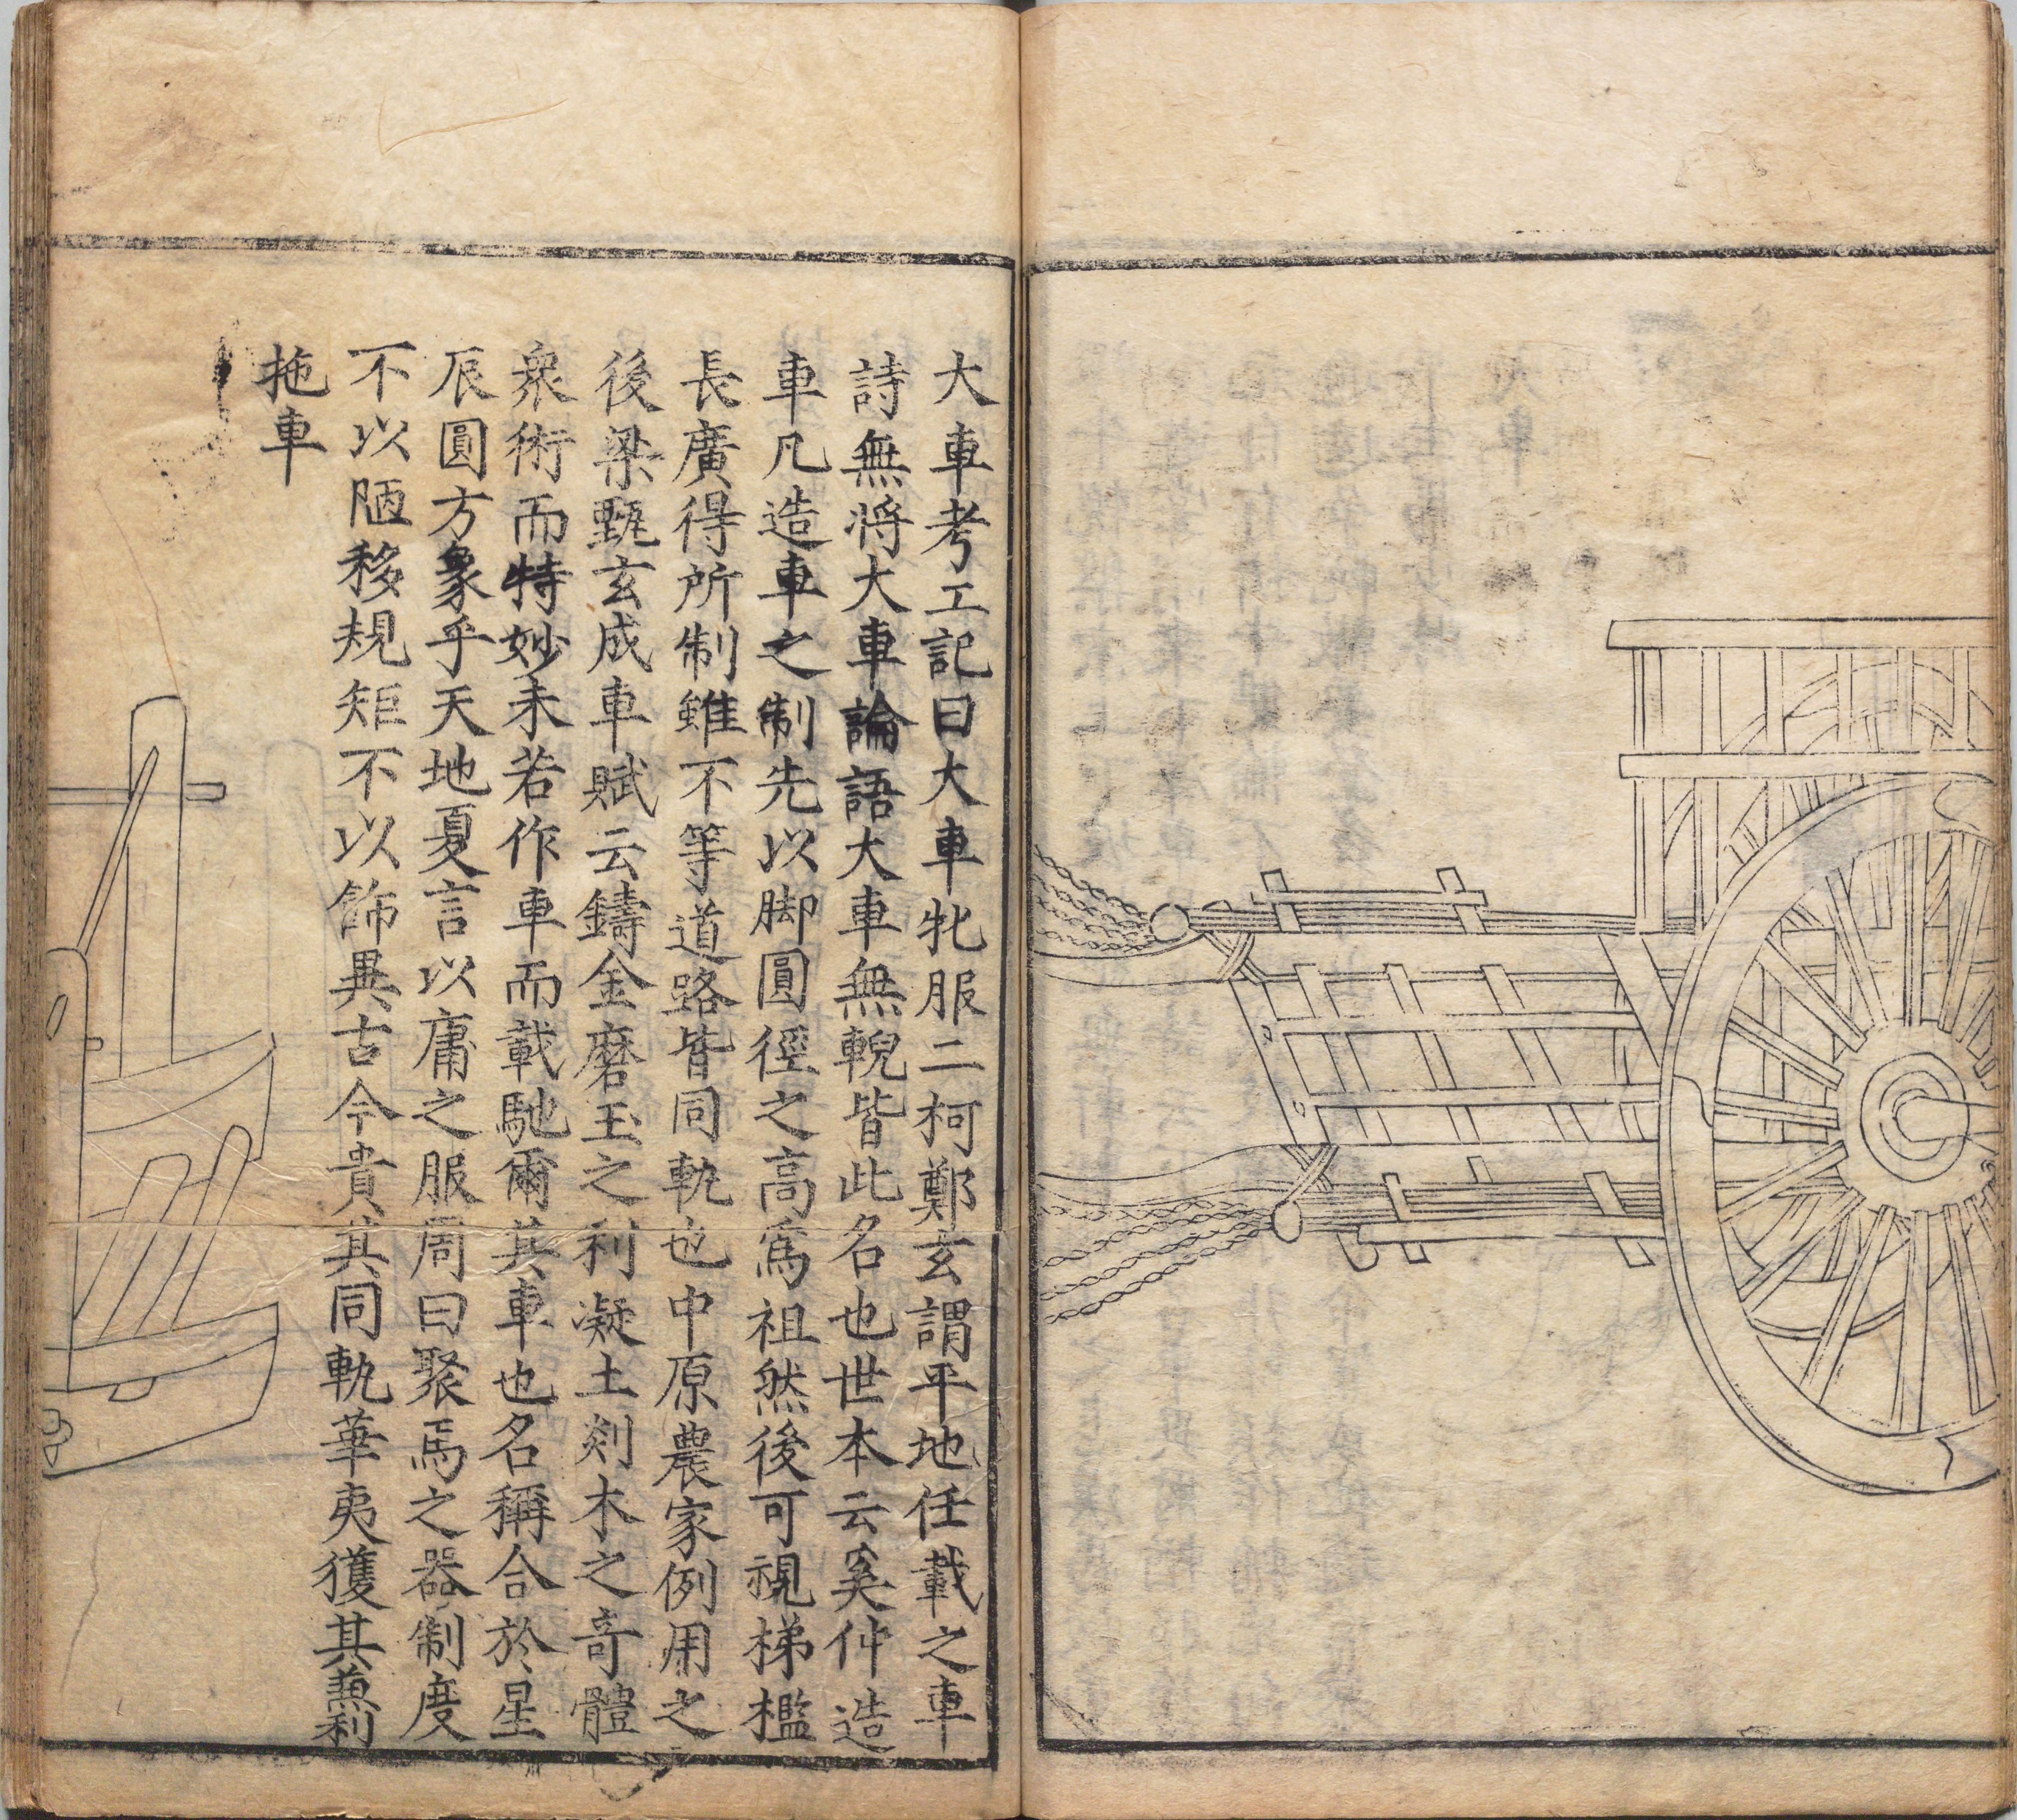 大車考工記曰大車牝服二柯鄭玄謂平地任載之車
詩無將大車論語大車無輗皆此名也世本云奚仲造
車凡造車之制先以脚圓徑之高爲祖然後可視梯檻
長廣得所制雖不等道路皆同軌也中原農家例用之
後梁甄玄成車賦云鑄金磨玉之利凝土剡木之奇體
衆術而特妙未若作車而載馳爾其車也名稱合於星
辰圓方象乎天地夏言以庸之服周曰聚焉之器制度
不以陋移規矩不以飾異古今貴其同軌華夷獲其兼利
拖車